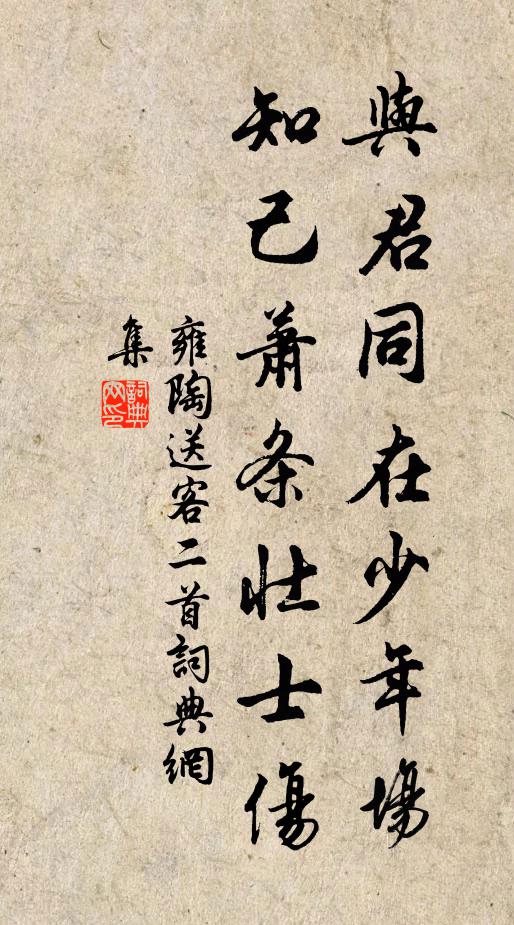 與君同在少年場
知己蕭条壯士傷
雍陶送客二首詞典網
集
詞典
网印